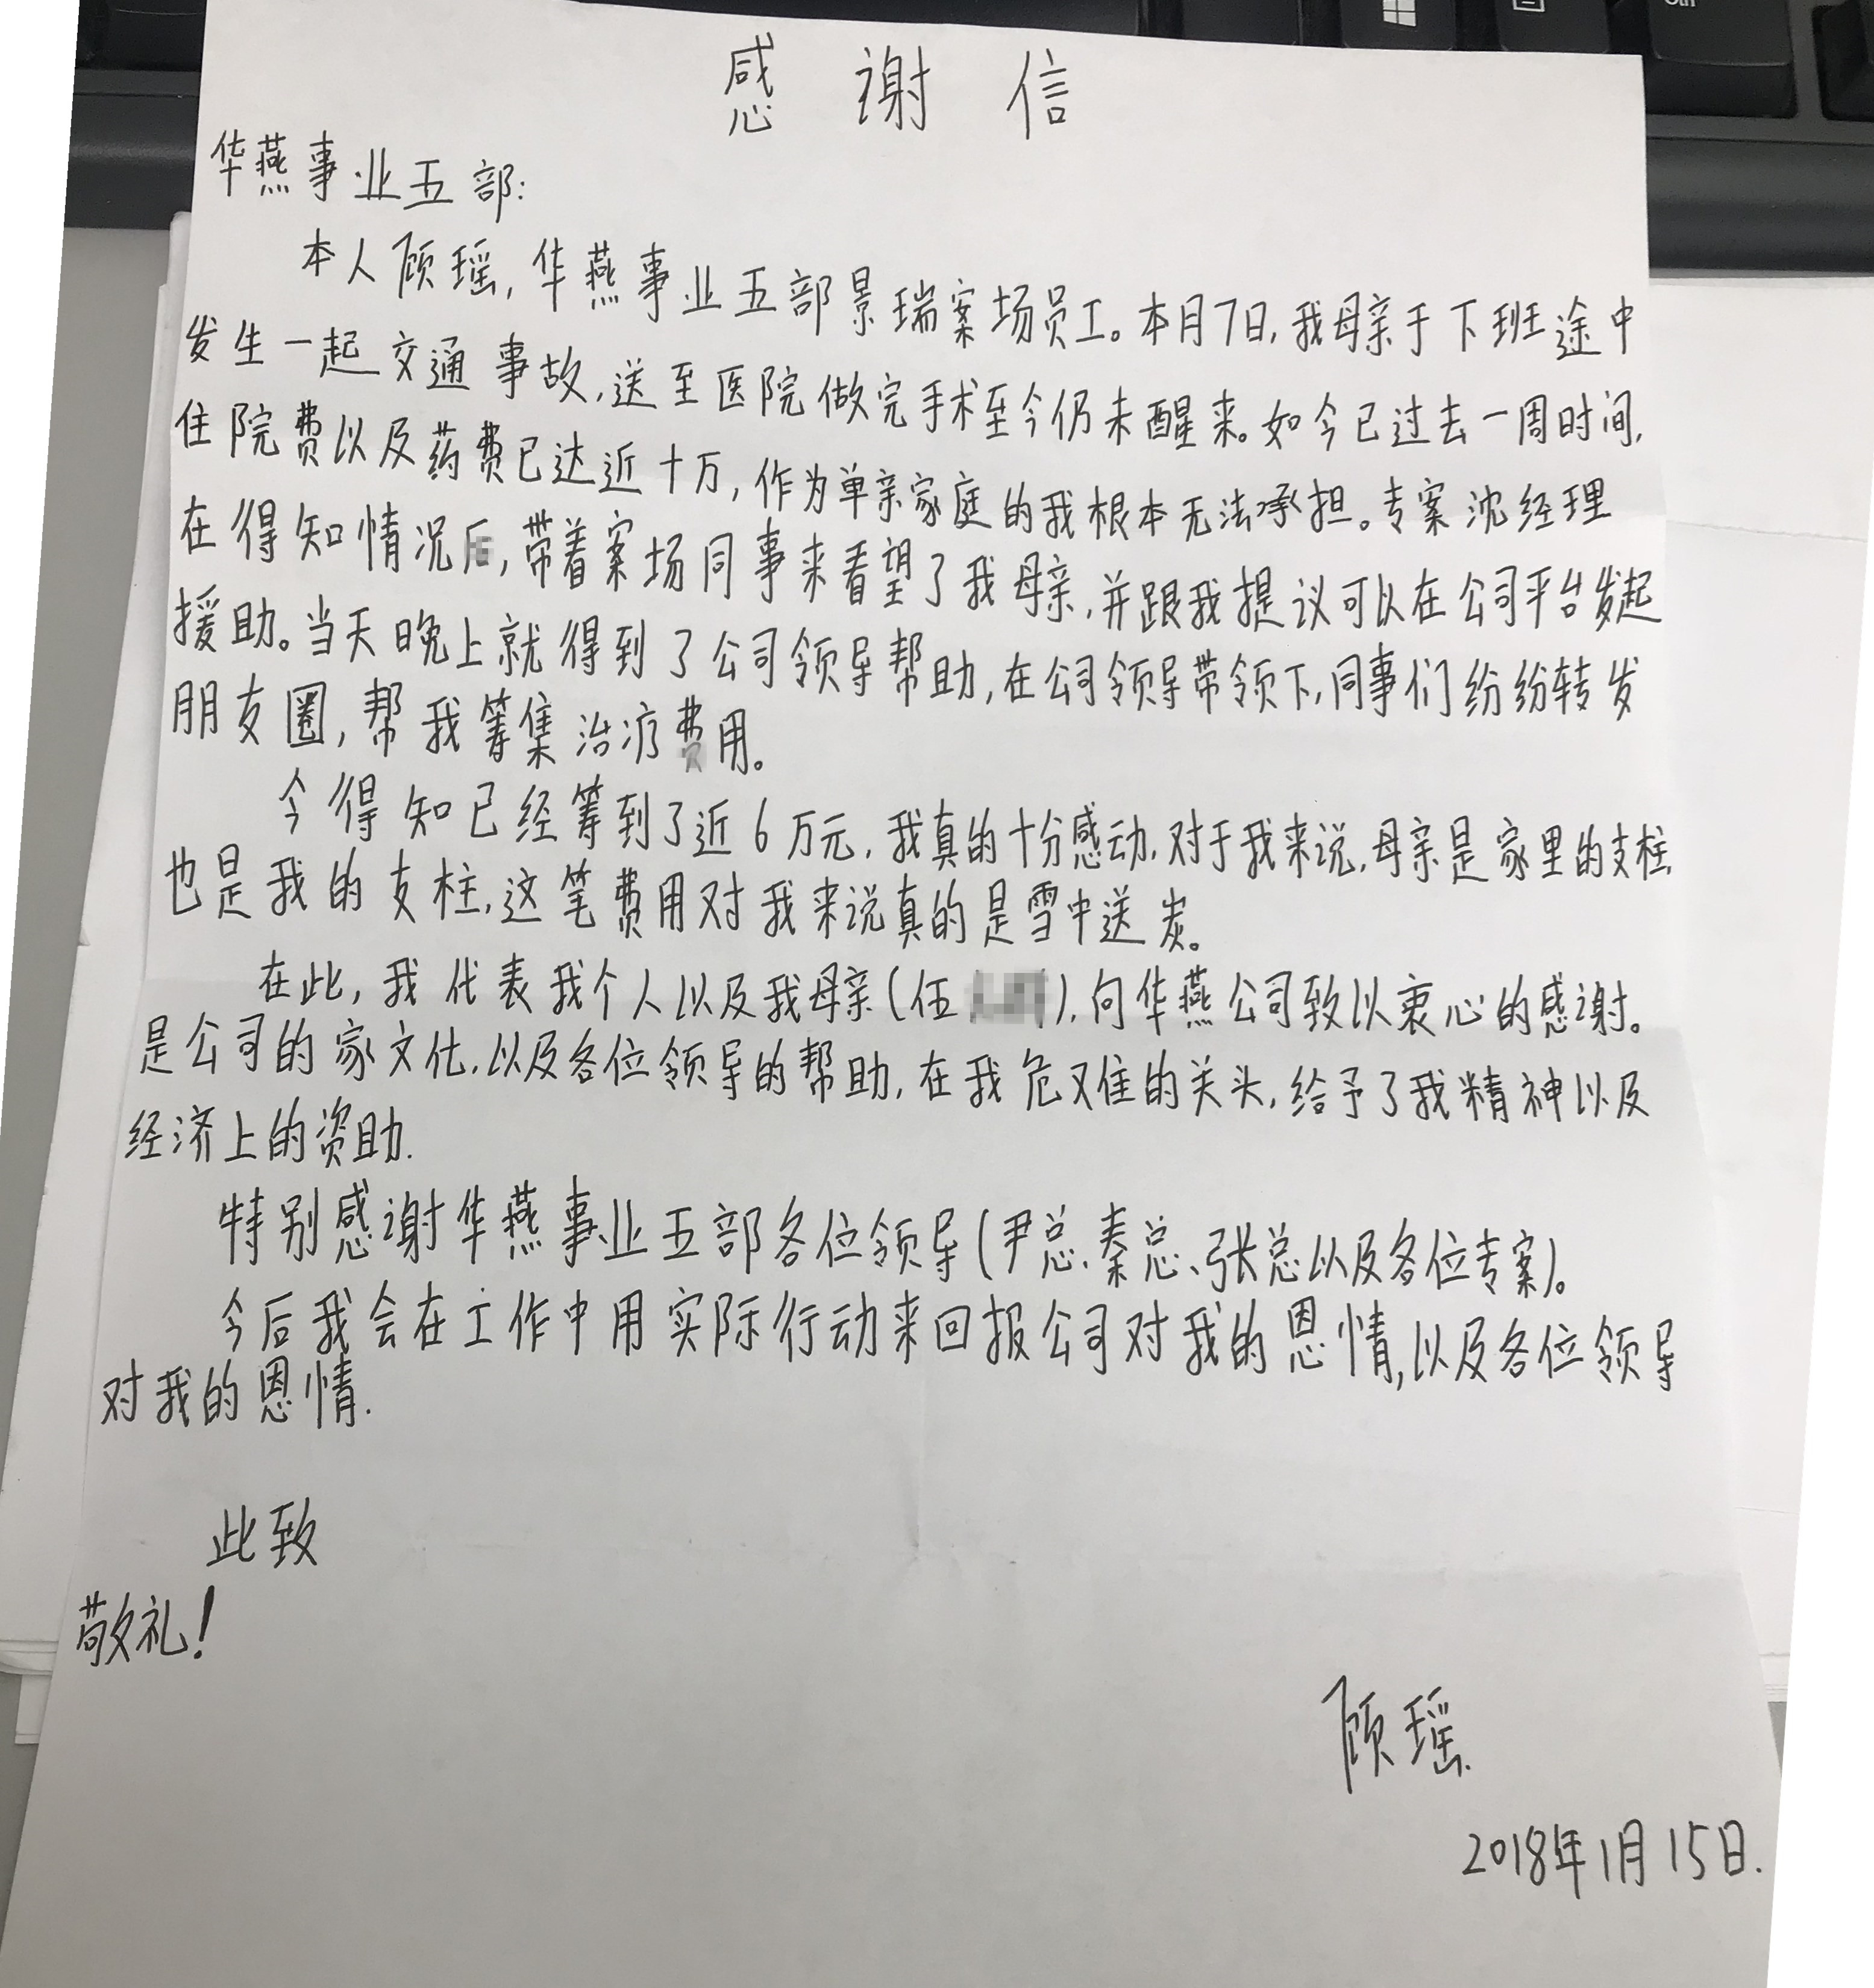 感谢信
华燕事业五部:
本人顾瑶,华燕事业五部景瑞案场员工。本月7日,我母亲于下班途中
发生一起交通事故,送至医院做完手术至今仍未醒来。如今已过去一周时间,
住院费以及药费已达近十万,作为单亲家庭的我根本无法承担。专案沈经理
在得知情况后,带着案场同事来看望了我母亲,并跟我提议可以在公司平台发起
援助。当天晚上就得到了公司领导帮助,在公司领导带领下,同事们纷纷转发
朋友圈,帮我筹集治疗费用。
今得知已经筹到了近6万元,我真的十分感动.对于我来说,母亲是家里的支柱,
也是我的支柱,这笔费用对我来说真的是雪中送炭。
在此,我代表我个人以及我母亲(伍),向华燕公司致以衷心的感谢。
是公司的家文化,以及各位领导的帮助,在我危难的关头,给予了我精神以及
经济上的资助.
特别感谢华燕事业五部各位领导(尹总、秦总、张总以及各位专案)。
今后我会在工作中用实际行动来回报公司对我的恩情,以及各位领导
对我的恩情.
此致
敬礼!
顾瑶.
2018年1月15日.
Ctrl